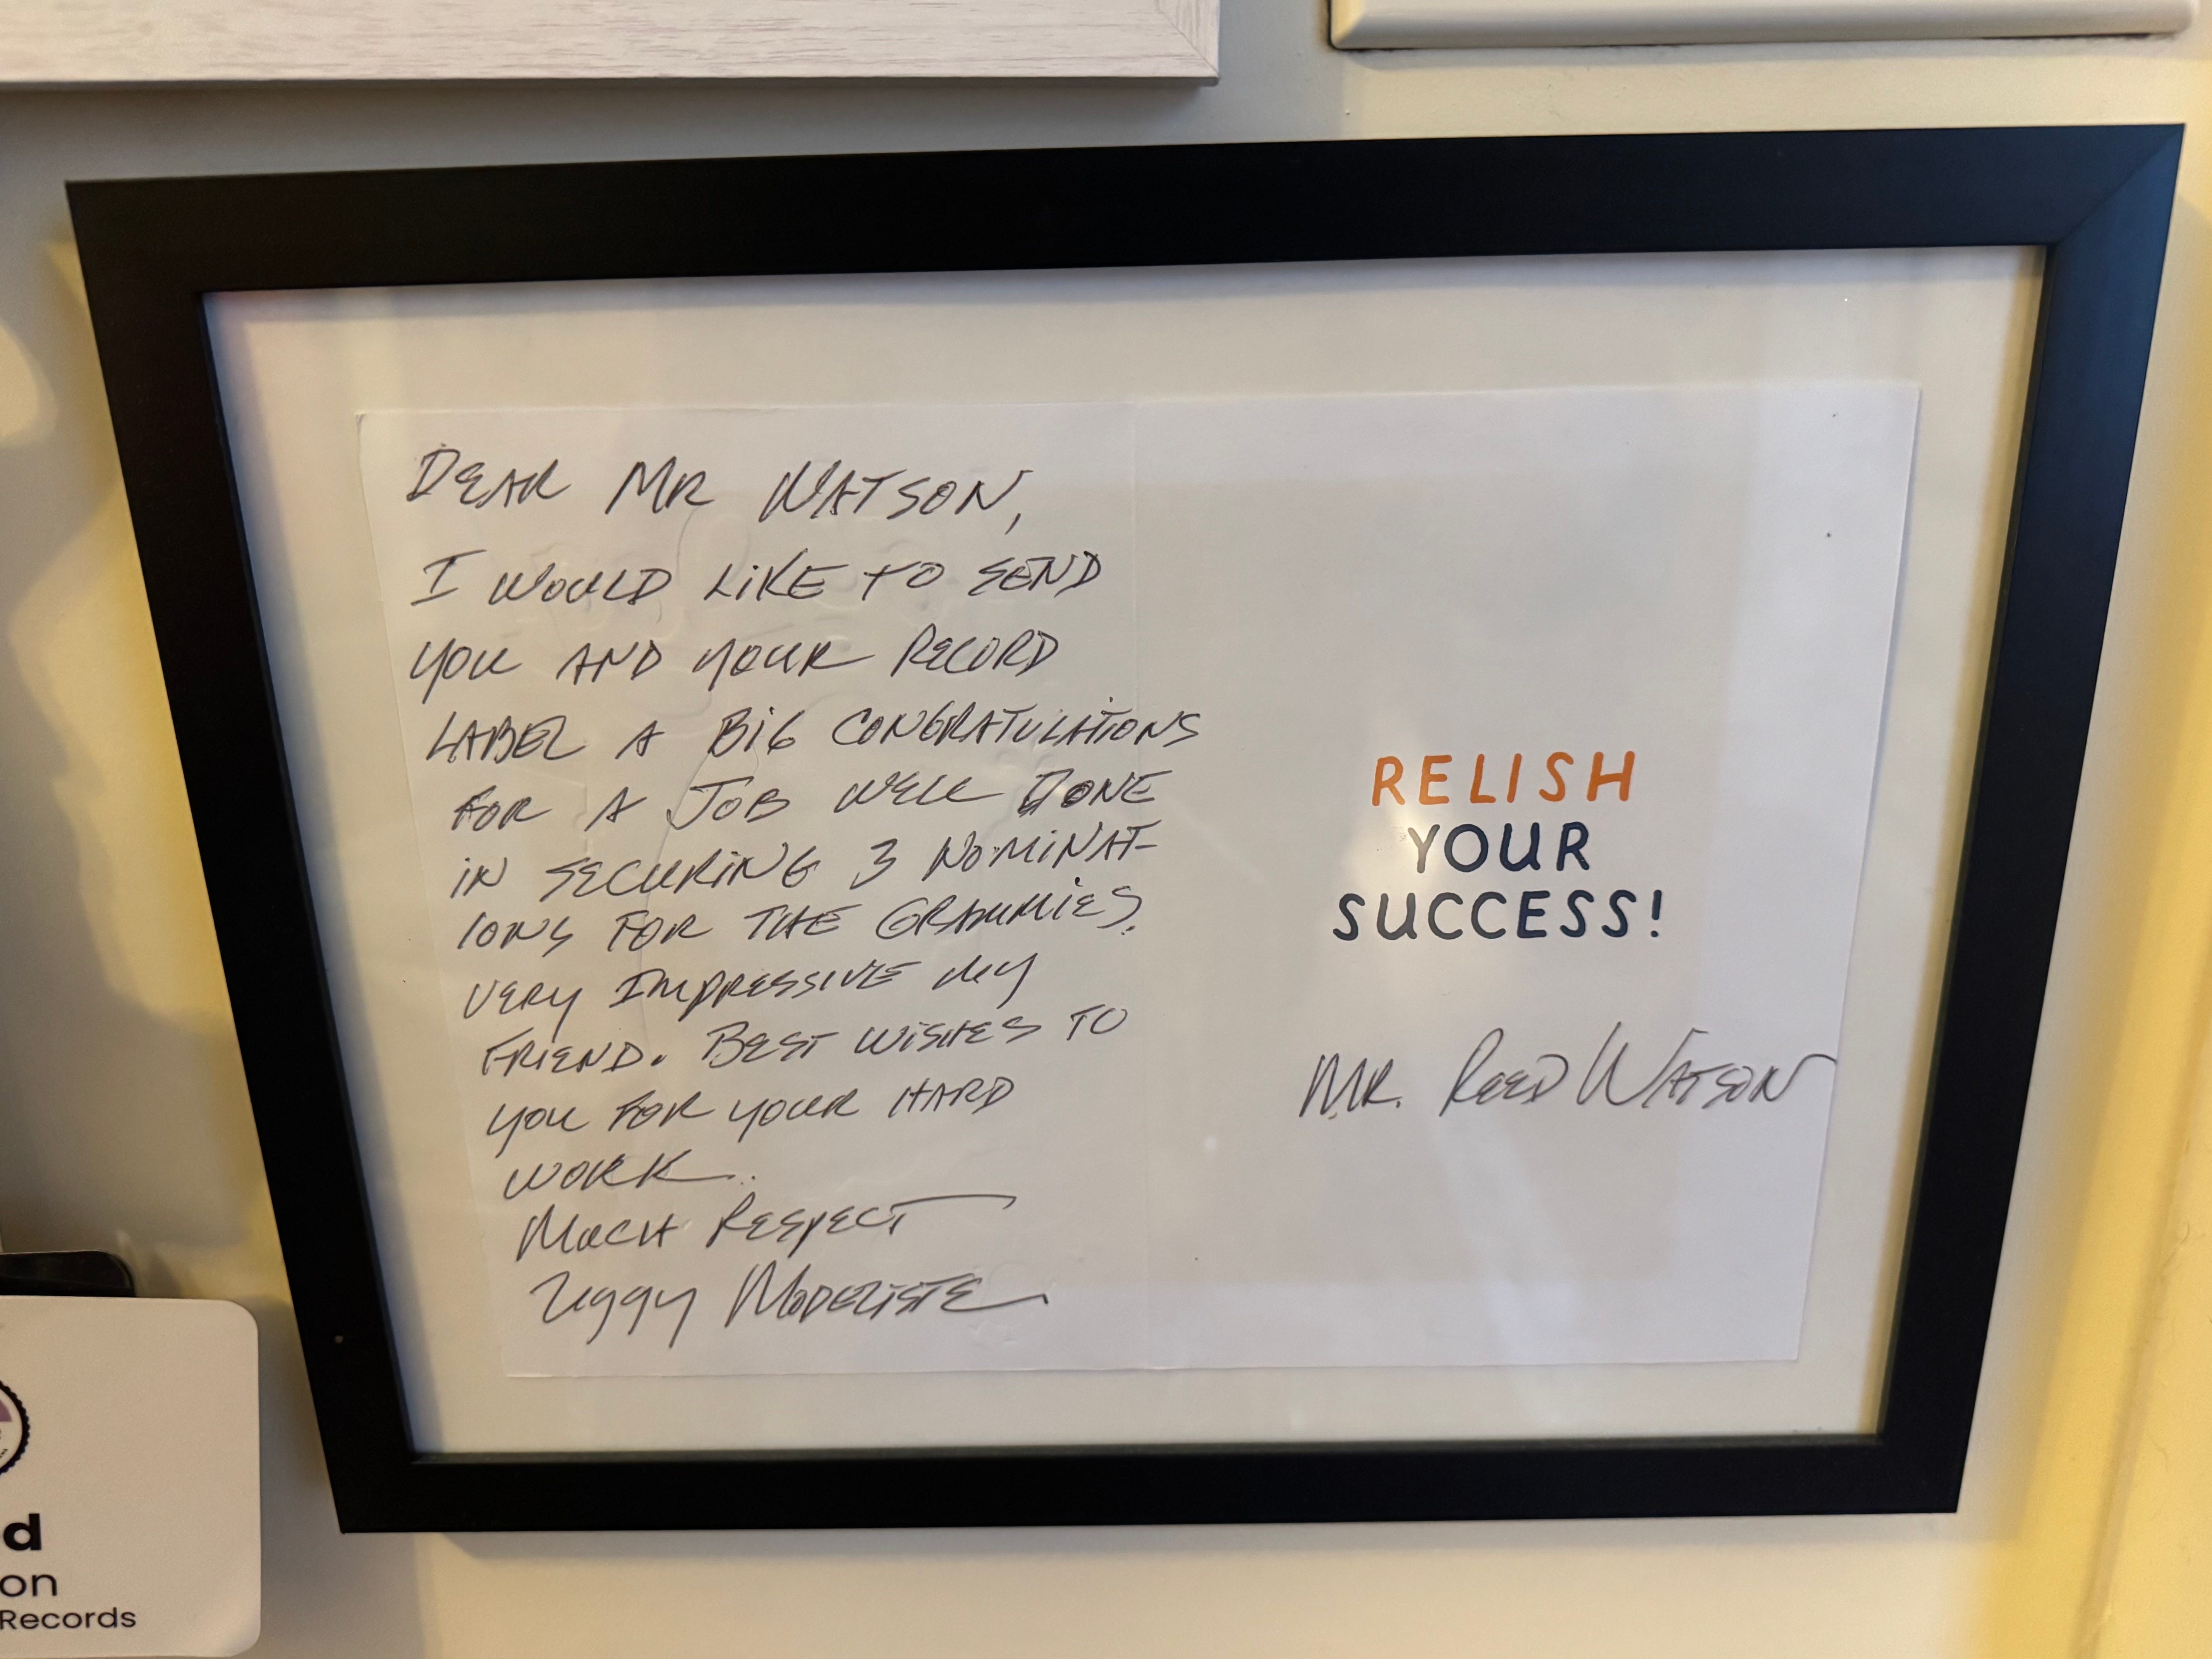 DEAR MR WATSON,
I WOULD LIKE TO SEND
YOU AND YOUR RECORD
LABEL A BIG CONGRATULATIONS
FOR A JOB WELL DONE
IN SECURING 3 NOMINAT-
IONS FOR THE GRAMMIES.
VERY IMPRESSIVE MY
FRIEND. BEST WISHES TO
YOU FOR YOUR HARD
WORK..
MUCH RESPECT
ZIGGY MODELISTE
RELISH
YOUR
SUCCESS!
MR. REED WATSON
d
on
Records